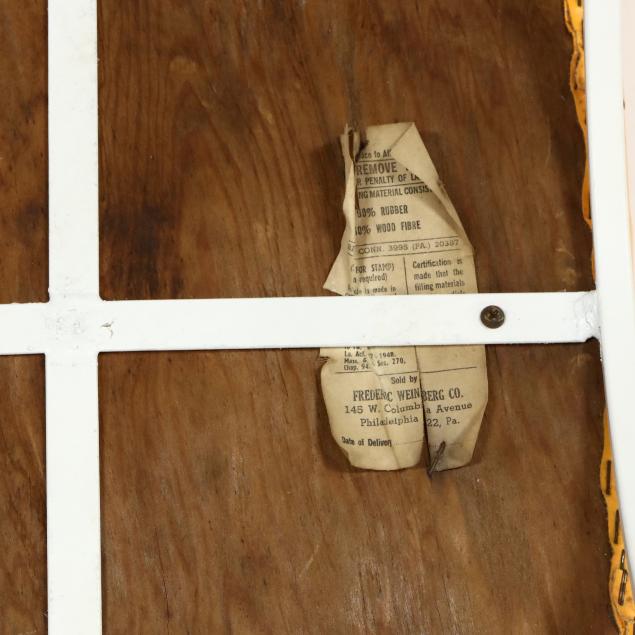 ace to All
REMOVE
R PENALTY OF LA
NG MATERIAL CONSIS
00% RUBBER
0% WOOD FIBRE
CONN. 3995 (PA.) 20387
(FOR STAMP)
a required)
is made in
Certification is
made that the
filling materials
La. Act. 1948.
Mass. G.
Chap. 94. Sec. 270.
Sold by
FREDERIC WEINBERG CO.
145 W. Columbia Avenue
Philadelphia 22, Pa.
Date of Delivery